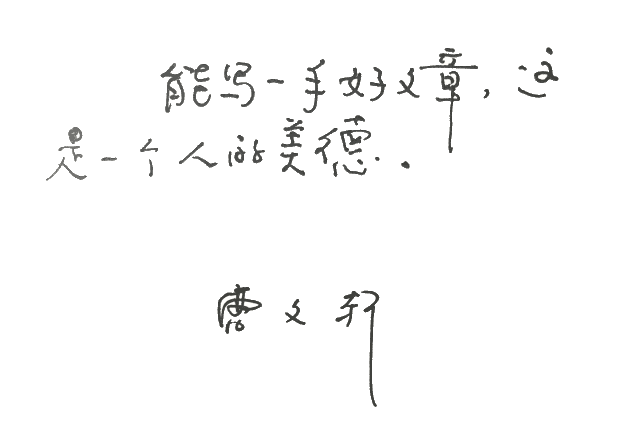 能写一手好文章，这
是一个人的美德．
曹文轩